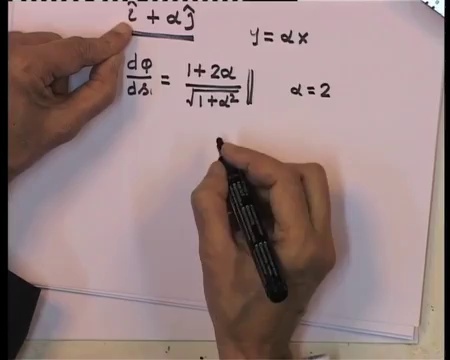 î + αĵ
y = αx
dφ/ds₁ = (1 + 2α)/√(1 + α²) ‖ α = 2